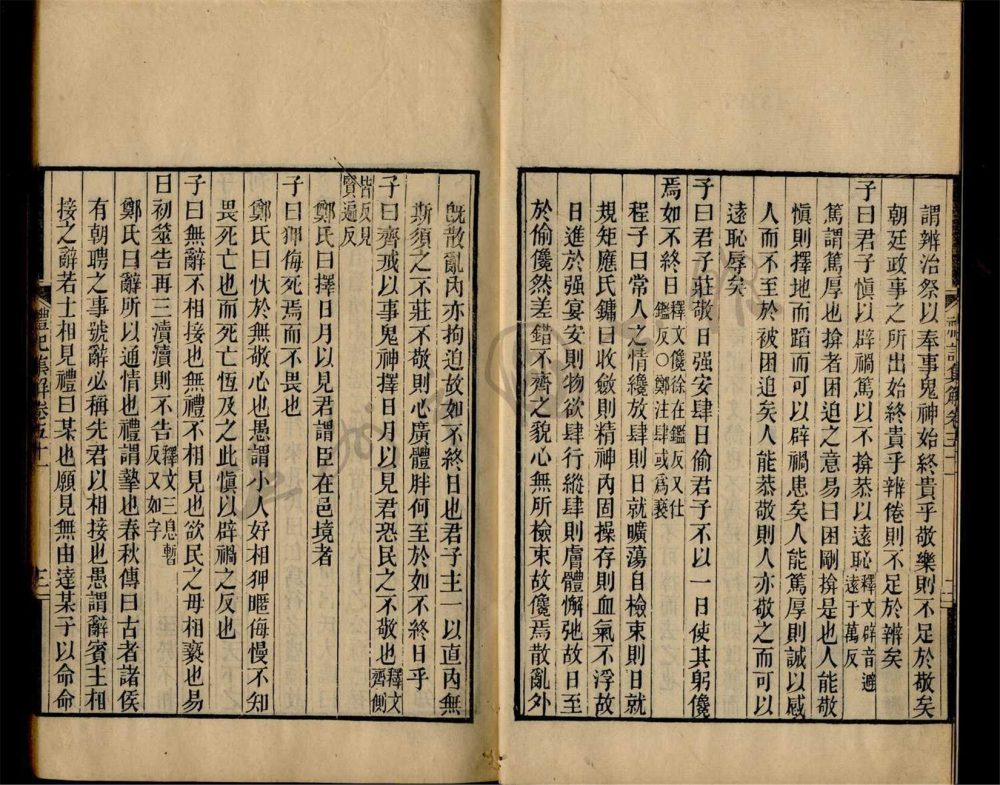 謂辨治祭以奉事鬼神始終貴乎敬樂則不足於敬矣
朝廷政事之所出始終貴乎辨倦則不足於辨矣
子曰君子慎以辟禍篤以不揜恭以遠恥釋文辟音避遠于萬反
篤謂篤厚也揜者困迫之意易曰困剛揜是也人能敬
慎則擇地而蹈而可以辟禍患矣人能篤厚則誠以感
人而不至於被困迫矣人能恭敬則人亦敬之而可以
遠恥辱矣
子曰君子莊敬日强安肆日偷君子不以一日使其躬儳
焉如不終日釋文儳徐在鑑反又仕鑑反〇鄭注肆或爲䙝
程子曰常人之情纔放肆則日就曠蕩自檢束則日就
規矩應氏鏞曰收斂則精神内固操存則血氣不浮故
日進於强宴安則物欲肆行縱肆則膚體懈弛故日至
於偷儳然差錯不齊之貌心無所檢束故儳焉散亂外
既散亂内亦拘迫故如不終日也君子主一以直内無
斯須之不莊不敬則心廣體胖何至於如不終日乎
子曰齊戒以事鬼神擇日月以見君恐民之不敬也釋文齊側
皆反見賢遍反
鄭氏曰擇日月以見君謂臣在邑境者
子曰狎侮死焉而不畏也
鄭氏曰忕於無敬心也愚謂小人好相狎暱侮慢不知
畏死亡也而死亡恆及之此慎以辟禍之反也
子曰無辭不相接也無禮不相見也欲民之毋相䙝也易
曰初筮告再三瀆瀆則不告釋文三息暫反又如字
鄭氏曰辭所以通情也禮謂摯也春秋傳曰古者諸侯
有朝聘之事號辭必稱先君以相接也愚謂辭賓主相
接之辭若士相見禮曰某也願見無由達某子以命命
禮記集解卷五十一
十二